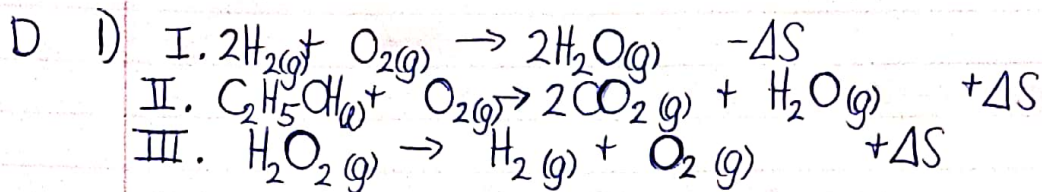 D 1) I. 2H₂(g) + O₂(g) → 2H₂O(g) -ΔS
II. C₂H₅OH(l) + O₂(g) → 2CO₂(g) + H₂O(g) +ΔS
III. H₂O₂(g) → H₂(g) + O₂(g) +ΔS